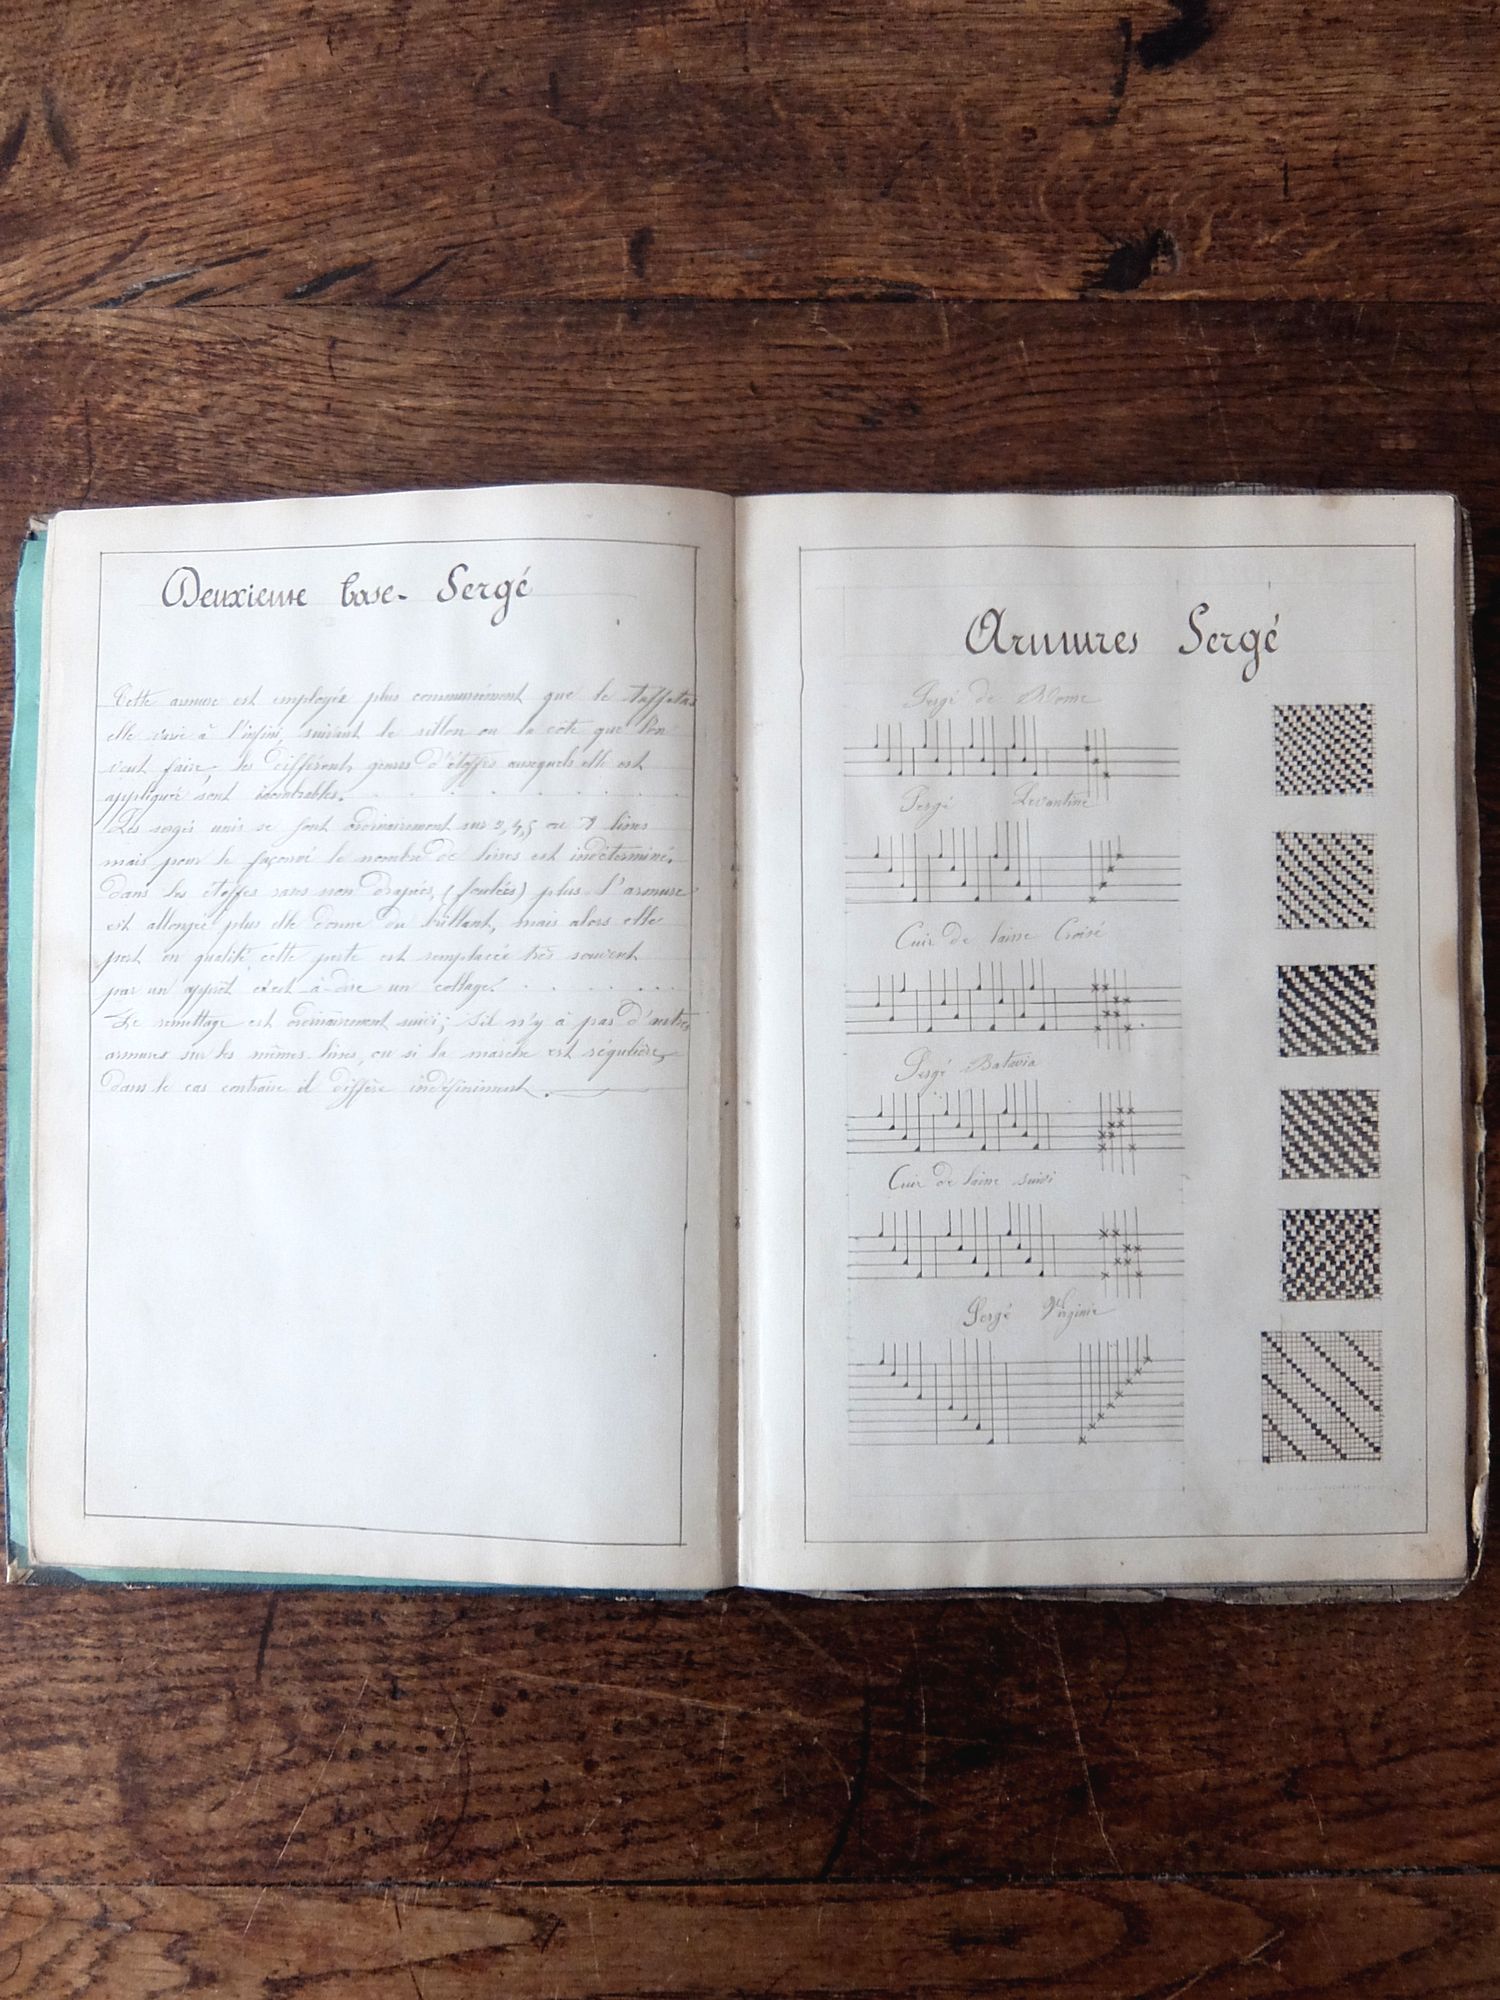 Deuxieme base - Sergé
Cette armure est employée plus communément que le taffetas
elle varie à l'infini, suivant le sillon ou la côte que l'on
veut faire, les différents genres d'étoffes auxquels elle est
appliquée sont
Les sergés unis se font ordinairement sur 3, 4, 5 ou lisses
mais pour le façonné le nombre de lisses est indéterminé,
dans les étoffes rases non drapées, (foulées) plus l'armure
est allongée plus elle donne du brillant, mais alors elle
perd en qualité cette perte est remplacée très souvent
par un apprêt c'est à-dire un collage.
Le remettage est ordinairement suivi; s'il n'y à pas d'autres
armures sur les mêmes lisses, ou si la marche est régulière,
dans le cas contraire il diffère indéfiniment.
Armures Sergé
Sergé de Rome
Sergé Levantine
Cuir de laine Croisé
Sergé Batavia
Cuir de laine suivi
Sergé Virginie